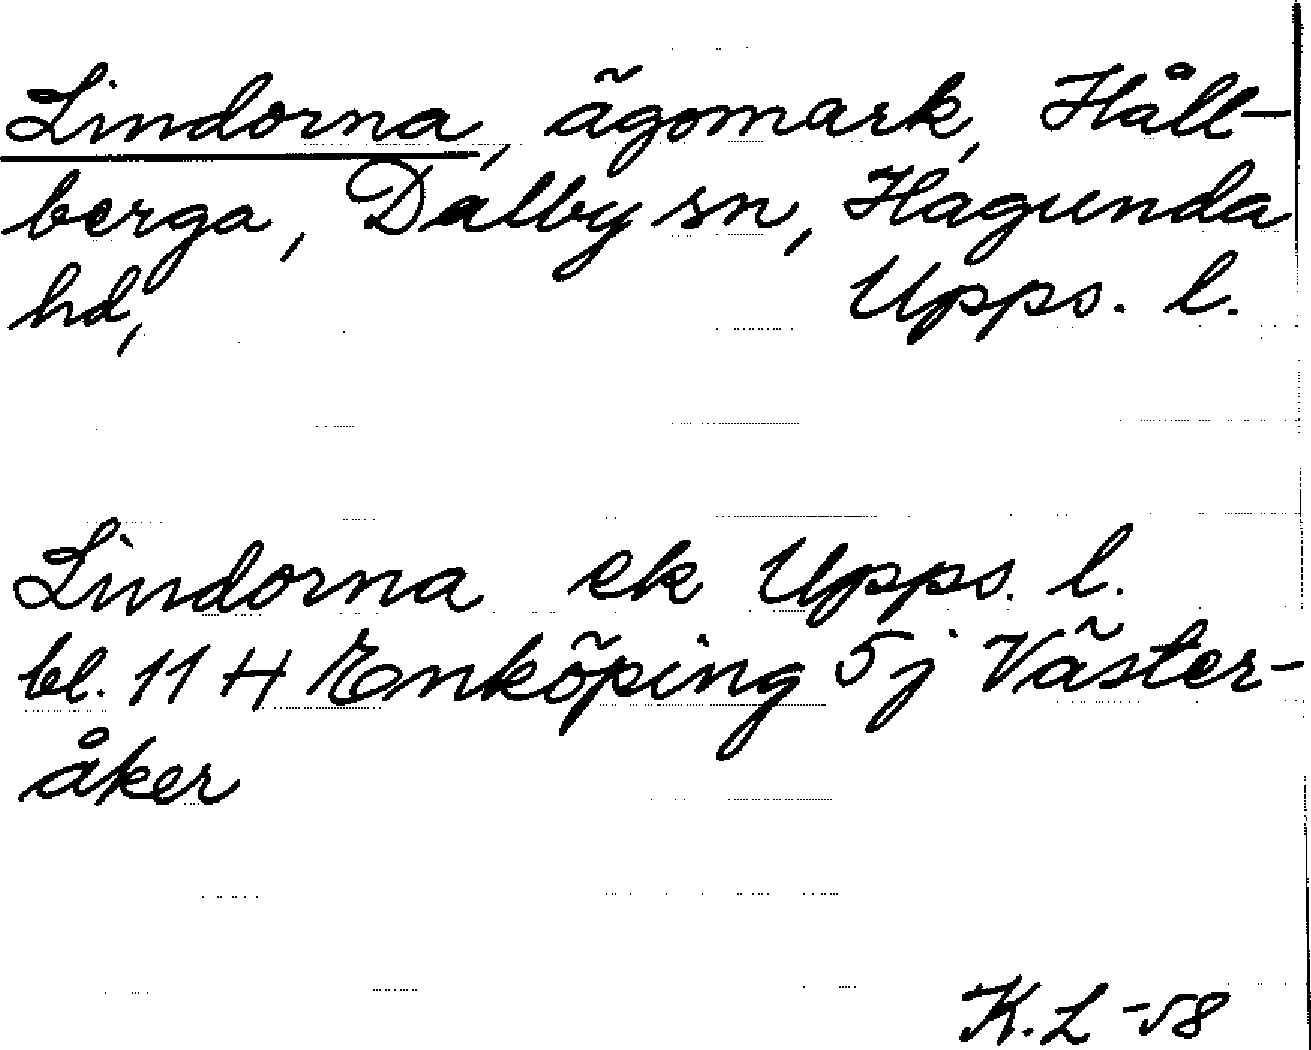 Lindorna, ägomark, Håll-
berga, Dalby sn, Hagunda
hd, Upps. l.
Lindorna ek Upps. l.
bl. 11 H Enköping 5j Väster-
åker
K.L -58